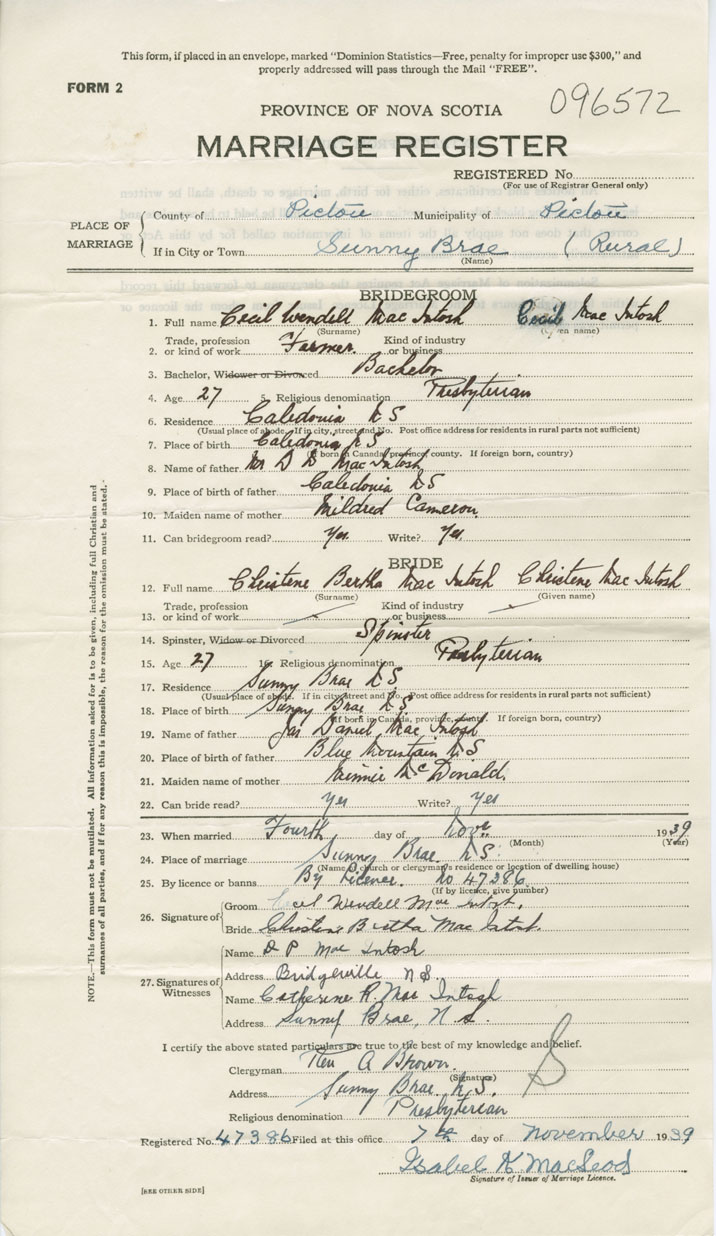 This form, if placed in an envelope, marked "Dominion Statistics—Free, penalty for improper use $300," and
properly addressed will pass through the Mail "FREE".
FORM 2
096572
PROVINCE OF NOVA SCOTIA
MARRIAGE REGISTER
REGISTERED No.
(For use of Registrar General only)
PLACE OF MARRIAGE
County of Pictou Municipality of Pictou
If in City or Town Sunny Brae (Rural)
(Name)
BRIDEGROOM
1. Full name Cecil Wendell Mac Intosh Cecil Mac Intosh
(Surname) (Given name)
Trade, profession Kind of industry
2. or kind of work Farmer or business
3. Bachelor, Widower or Divorced Bachelor
4. Age 27 5. Religious denomination Presbyterian
6. Residence Caledonia N S
(Usual place of abode. If in city, street and No. Post office address for residents in rural parts not sufficient)
7. Place of birth Caledonia N S
(If born in Canada, province, county. If foreign born, country)
8. Name of father D D Mac Intosh
9. Place of birth of father Caledonia N S
10. Maiden name of mother Mildred Cameron
11. Can bridegroom read? Yes Write? Yes
BRIDE
12. Full name Christene Bertha Mac Intosh Christene Mac Intosh
(Surname) (Given name)
Trade, profession Kind of industry
13. or kind of work or business
14. Spinster, Widow or Divorced Spinster
15. Age 27 16. Religious denomination Presbyterian
17. Residence Sunny Brae N S
(Usual place of abode. If in city, street and No. Post office address for residents in rural parts not sufficient)
18. Place of birth Sunny Brae N S
(If born in Canada, province, county. If foreign born, country)
19. Name of father Jas Daniel Mac Intosh
20. Place of birth of father Blue Mountain N S
21. Maiden name of mother Minnie McDonald
22. Can bride read? Yes Write? Yes
23. When married Fourth day of Nove 1939
(Month) (Year)
24. Place of marriage Sunny Brae N S.
(Name of church or clergyman's residence or location of dwelling house)
25. By licence or banns By Licence. No 47386
(If by licence, give number)
26. Signature of
Groom Cecil Wendell Mac Intosh.
Bride Christene Bertha Mac Intosh.
27. Signatures of Witnesses
Name D P Mac Intosh
Address Bridgeville N S.
Name Catherine R. Mac Intosh
Address Sunny Brae, N. S.
I certify the above stated particulars are true to the best of my knowledge and belief.
Clergyman Rev A Brown.
(Signature)
Address Sunny Brae N.S.
Religious denomination Presbyterian
Registered No. 47386 Filed at this office 7th day of November 1939
Isabel K. MacLeod
Signature of Issuer of Marriage Licence.
[SEE OTHER SIDE]
NOTE.—This form must not be mutilated. All information asked for is to be given, including full Christian and
surnames of all parties, and if for any reason this is impossible, the reason for the omission must be stated.